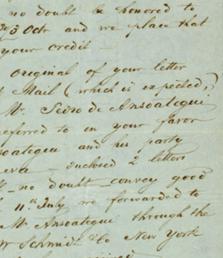 no doubt be honored to
3 Oct and we place that
your credit –
original of your letter
Mail (which is expected,)
Mr. Pedro de Ansoategue
referred to in your favor
soategue and his party
enclosed 2 letters
no doubt convey good
11th July we forwarded to
Mr Ansoategue through the
Schmidt & Co New York